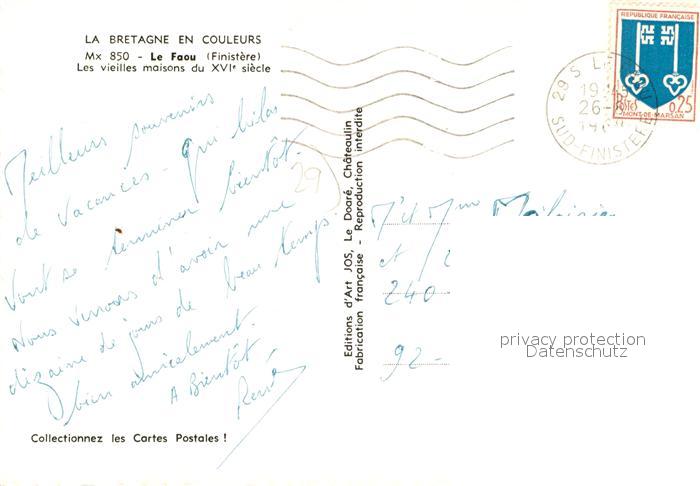 LA BRETAGNE EN COULEURS
Mx 850 - Le Faou (Finistère)
Les vieilles maisons du XVIe siècle
Meilleurs souvenirs
de vacances - qui hélas
vont se terminer bientôt.
Nous venons d'avoir une
dizaine de jours de beau temps.
bien amicalement.
A Bientôt
René
Collectionnez les Cartes Postales !
29
Editions d'Art JOS, Le Doaré, Châteaulin
Fabrication française - Reproduction interdite
REPUBLIQUE FRANÇAISE
POSTES
0,25
MONT-DE-MARSAN
29 S
26-
SUD-FINISTERE
M et Mme
et
240
92-
privacy protection
Datenschutz